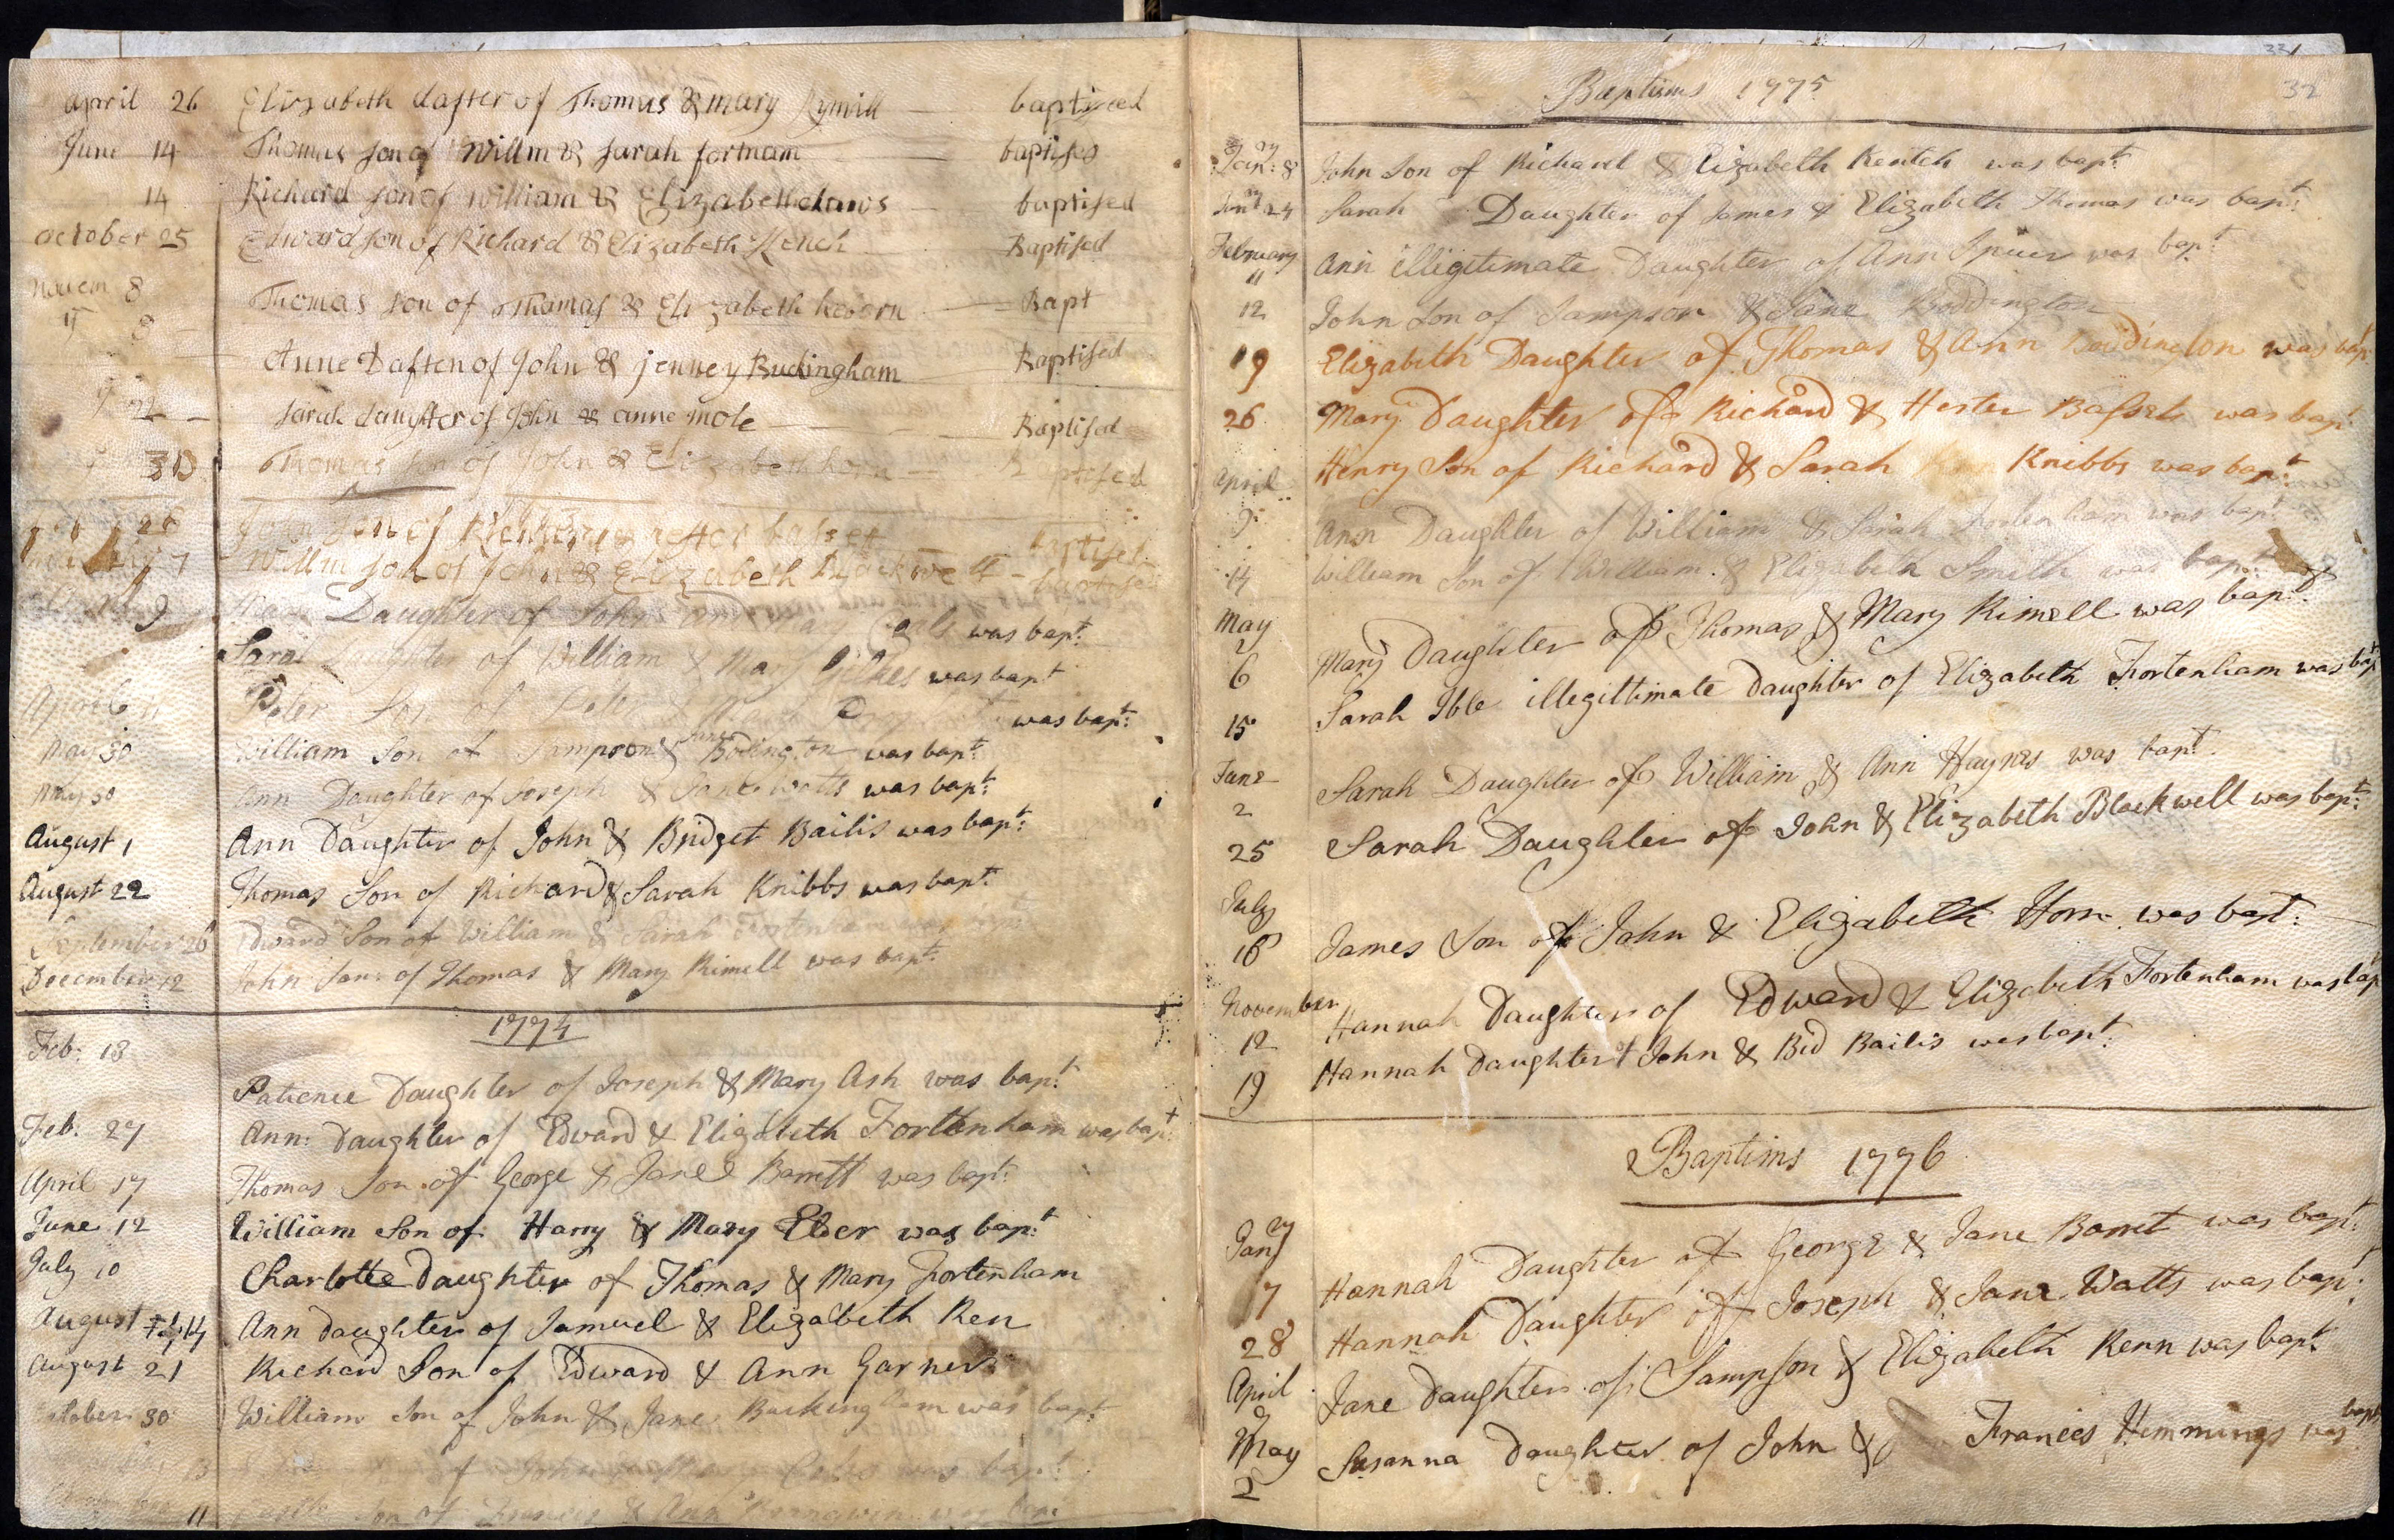 April 26 Elizabeth dafter of Thomas & mary Rymill baptized
June 14 Thomas son of Willm & Sarah fortnam baptises
14 Richard son of William & Elizabeth claws baptised
october 25 Edward son of Richard & Elizabeth Kench Baptised
Novem 8 Thomas son of Thomas & Elizabeth heborn Bapt
8 Anne Dafter of John & jenney Buckingham Baptised
22 sarah daughter of John & anne mole Baptised
Thomas son of John & Elizabeth horn Baptised
26 John son of baptised
7 Willm son of John & Elizabeth Blackwell baptised
9 Daughter of John and Mary was bapt:
Sarah Daughter of William & Mary Gilkes was bapt
April Peter Son of was bapt:
May 30 William Son of Sampson & Jane Bodington was bapt:
May 30 Ann Daughter of Joseph & Jane Watts was bapt:
August 1 Ann Daughter of John & Bridget Bailis was bapt:
August 22 Thomas Son of Richard & Sarah Knibbs was bapt:
September 26 Edward Son of William & Sarah Fortenham was bapt:
December 12 John Son of Thomas & Mary Rimell was bapt:
1774
Feb: 13 Patience Daughter of Joseph & Mary Ash was bapt:
Feb. 27 Ann: Daughter of Edward & Elizabeth Fortenham was bapt:
April 17 Thomas Son of George & Jane Barrett was bapt:
June 12 William Son of Harry & Mary Elder was bapt:
July 10 Charlotte Daughter of Thomas & Mary Fortenham
August 14 Ann daughter of Samuel & Elizabeth Ren
August 21 Richard Son of Edward & Ann Garner
October 30 William Son of John & Jane Buckingham was bapt:
13 of John was bapt:
11 Son of Francis & Ann was bapt
32
Baptisms 1775
Jan:ry 8 John Son of Richard & Elizabeth Kentch was bapt:
Janry 24 Sarah Daughter of James & Elizabeth Thomas was bapt:
February 11 Ann illigitimate Daughter of Ann Spicer was bapt:
12 John Son of Sampson & Jane Boddington
19 Elizabeth Daughter of Thomas & Ann Boddington was bapt
26 Mary Daughter of Richard & Hester Basset was bapt
April Henry Son of Richard & Sarah Knibbs was bapt:
9 Ann Daughter of William & Sarah Fortenham was bapt:
14 William Son of William & Elizabeth Smith was bapt:
May
6 Mary Daughter of Thomas & Mary Rimell was bapt:
15 Sarah Ible illegittimate Daughter of Elizabeth Fortenham was bapt
June
2 Sarah Daughter of William & Ann Haynes was bapt:
25 Sarah Daughter of John & Elizabeth Blackwell was bapt:
July
16 James Son of John & Elizabeth Horn was bapt:
November
12 Hannah Daughter of Edward & Elizabeth Fortenham was bap
19 Hannah Daughter of John & Bid Bailis was bapt:
Baptims 1776
Janry
7 Hannah Daughter of George & Jane Barret was bapt:
28 Hannah Daughter of Joseph & Jane Watts was bapt:
April Jane Daughter of Sampson & Elizabeth Renn was bapt:
May
2 Susanna Daughter of John & Francis Hemmings was bapt